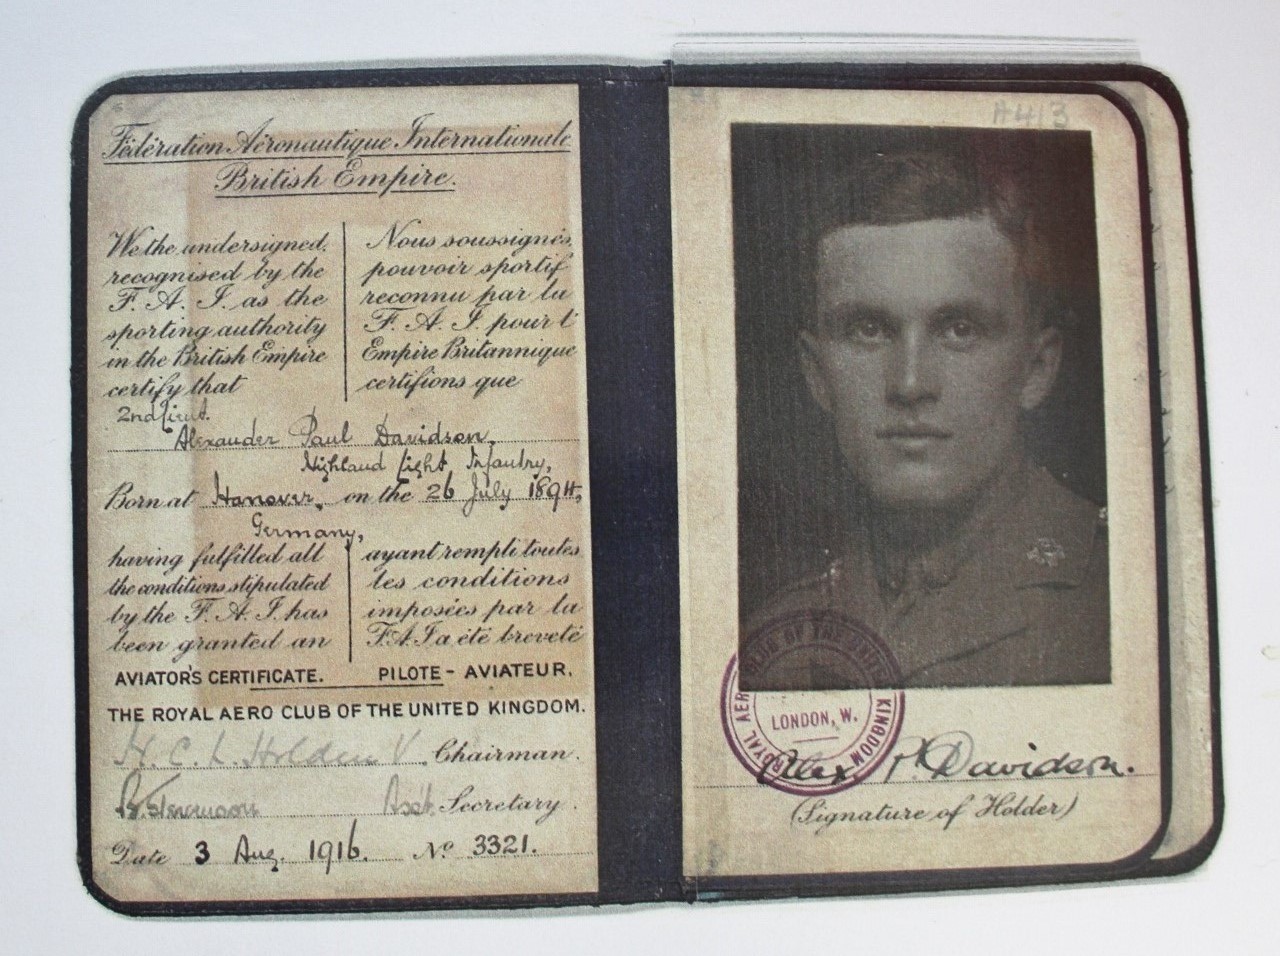 Fédération Aéronautique Internationale
British Empire.
We the undersigned,
recognised by the
F. A. I. as the
sporting authority
in the British Empire
certify that
Nous soussignés,
pouvoir sportif
reconnu par la
F. A. I. pour l'
Empire Britannique
certifions que
2nd Lieut.
Alexander Paul Davidson,
Highland Light Infantry,
Born at Hanover, on the 26 July 1894,
Germany,
having fulfilled all
the conditions stipulated
by the F. A. I. has
been granted an
ayant rempli toutes
les conditions
imposées par la
F.A.I a été breveté
AVIATOR'S CERTIFICATE. PILOTE - AVIATEUR.
THE ROYAL AERO CLUB OF THE UNITED KINGDOM.
H. C. L. Holden Chairman.
B. Stevenson Asst. Secretary.
Date 3 Aug. 1916. No. 3321.
A413
ROYAL AERO CLUB OF THE UNITED KINGDOM
LONDON, W.
Alex P. Davidson.
(Signature of Holder)